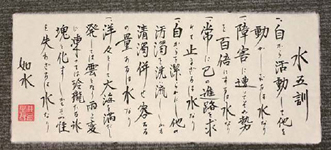 水五訓
一、自ら活動して他を
動かしむるは水なり
一、障害に逢ひてその勢
を百倍にするは水なり
一、常に己の進路を求
めて止まざるは水なり
一、自ら潔うして他の
汚濁を洗ひ
清濁併せ容るる
の量あるは水なり
一、洋々として大海を満し
発しては雲となり雨と変
ても其性
を失はざるは水なり
如水